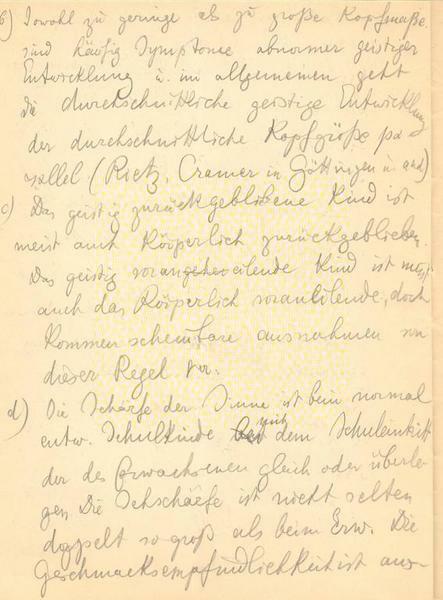 b) Sowohl zu geringe als zu große Kopfmaße
sind häufig Symptome abnormer geistiger
Entwicklung u. im allgemeinen geht
die durchschnittliche geistige Entwicklung
der durchschnittliche Kopfgröße pa
rallel (Rietz, Cramer in Göttingen u. and)
c) Das geistig zurückgebliebene Kind ist
meist auch Körperlich zurückgeblieben.
Das geistig voraneilende Kind ist meist
auch das Körperlich voraneilende, doch
kommen scheinbare ausnahmen von
dieser Regel vor.
d) Die Schärfe der Sinne ist beim normal
entw. Schulkinde mit dem Schuleintritt
der des Erwachsenen gleich oder überle-
gen Die Sehschärfe ist nicht selten
doppelt so groß als beim Erw. Die
Geschmacksempfindlichkeit ist aus-